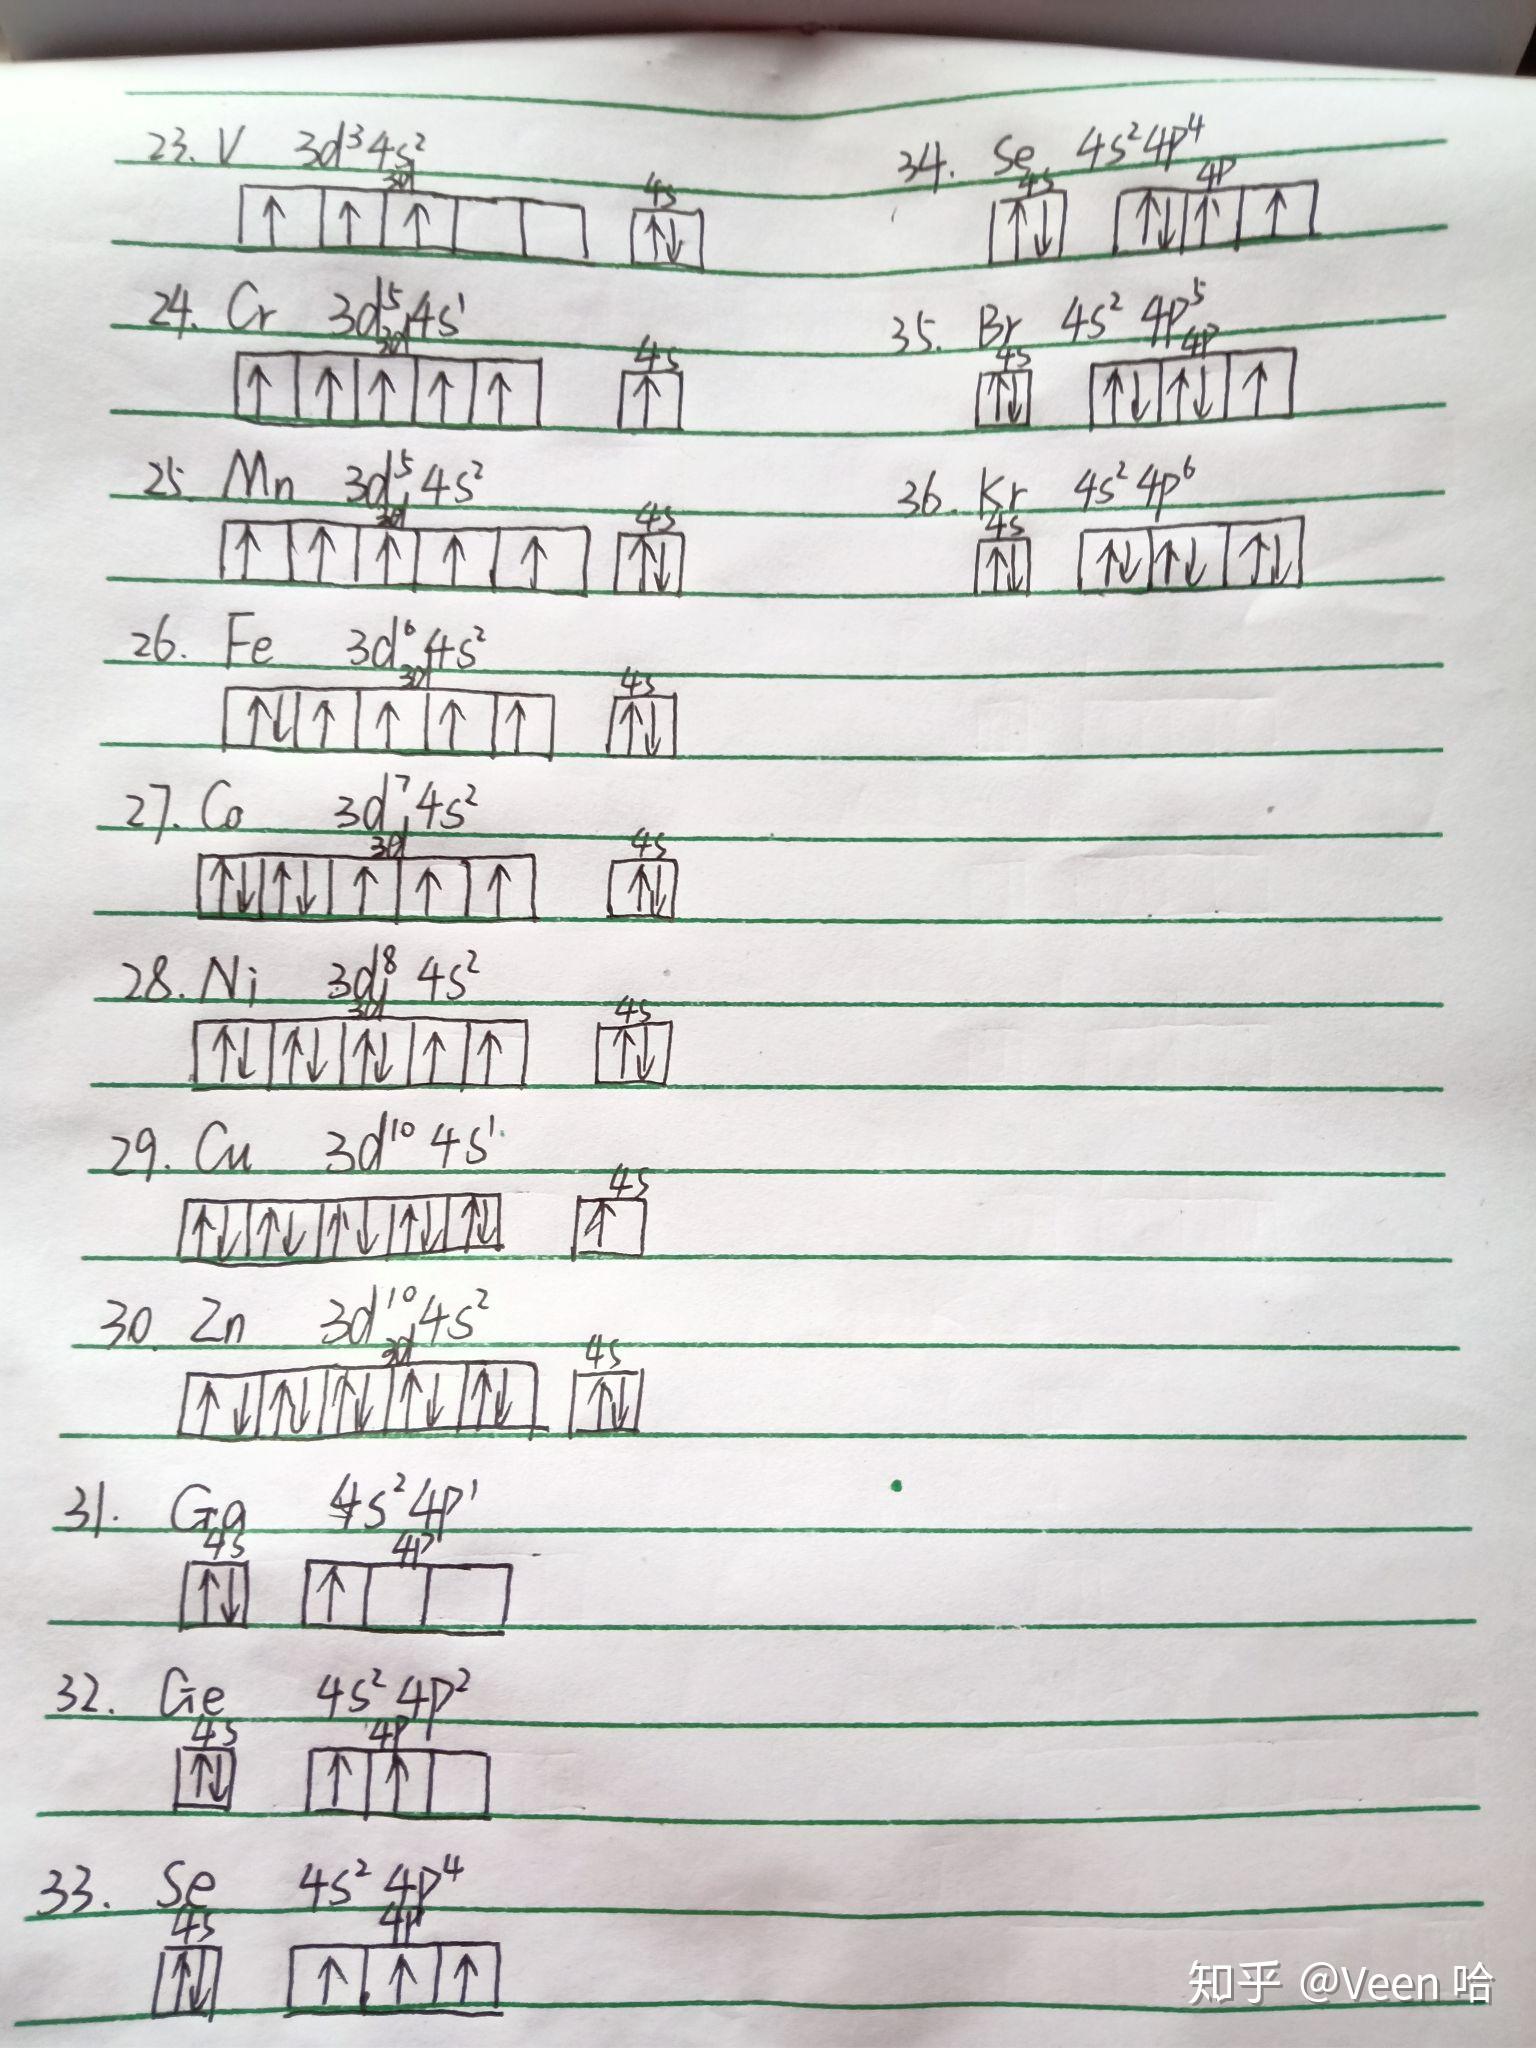 23. V 3d³4s²
3d 4s
↑ ↑ ↑ ↑↓
24. Cr 3d⁵4s¹
3d 4s
↑ ↑ ↑ ↑ ↑ ↑
25. Mn 3d⁵4s²
3d 4s
↑ ↑ ↑ ↑ ↑ ↑↓
26. Fe 3d⁶4s²
3d 4s
↑↓ ↑ ↑ ↑ ↑ ↑↓
27. Co 3d⁷4s²
3d 4s
↑↓ ↑↓ ↑ ↑ ↑ ↑↓
28. Ni 3d⁸ 4s²
3d 4s
↑↓ ↑↓ ↑↓ ↑ ↑ ↑↓
29. Cu 3d¹⁰ 4s¹
4s
↑↓ ↑↓ ↑↓ ↑↓ ↑↓ ↑
30. Zn 3d¹⁰4s²
3d 4s
↑↓ ↑↓ ↑↓ ↑↓ ↑↓ ↑↓
31. Ga 4s²4p¹
4s 4p
↑↓ ↑
32. Ge 4s²4p²
4s 4p
↑↓ ↑ ↑
33. Se 4s² 4p⁴
4s 4p
↑↓ ↑ ↑ ↑
34. Se 4s²4p⁴
4s 4p
↑↓ ↑↓ ↑ ↑
35. Br 4s² 4p⁵
4s 4p
↑↓ ↑↓ ↑↓ ↑
36. Kr 4s²4p⁶
4s
↑↓ ↑↓ ↑↓ ↑↓
知乎 @Veen 哈